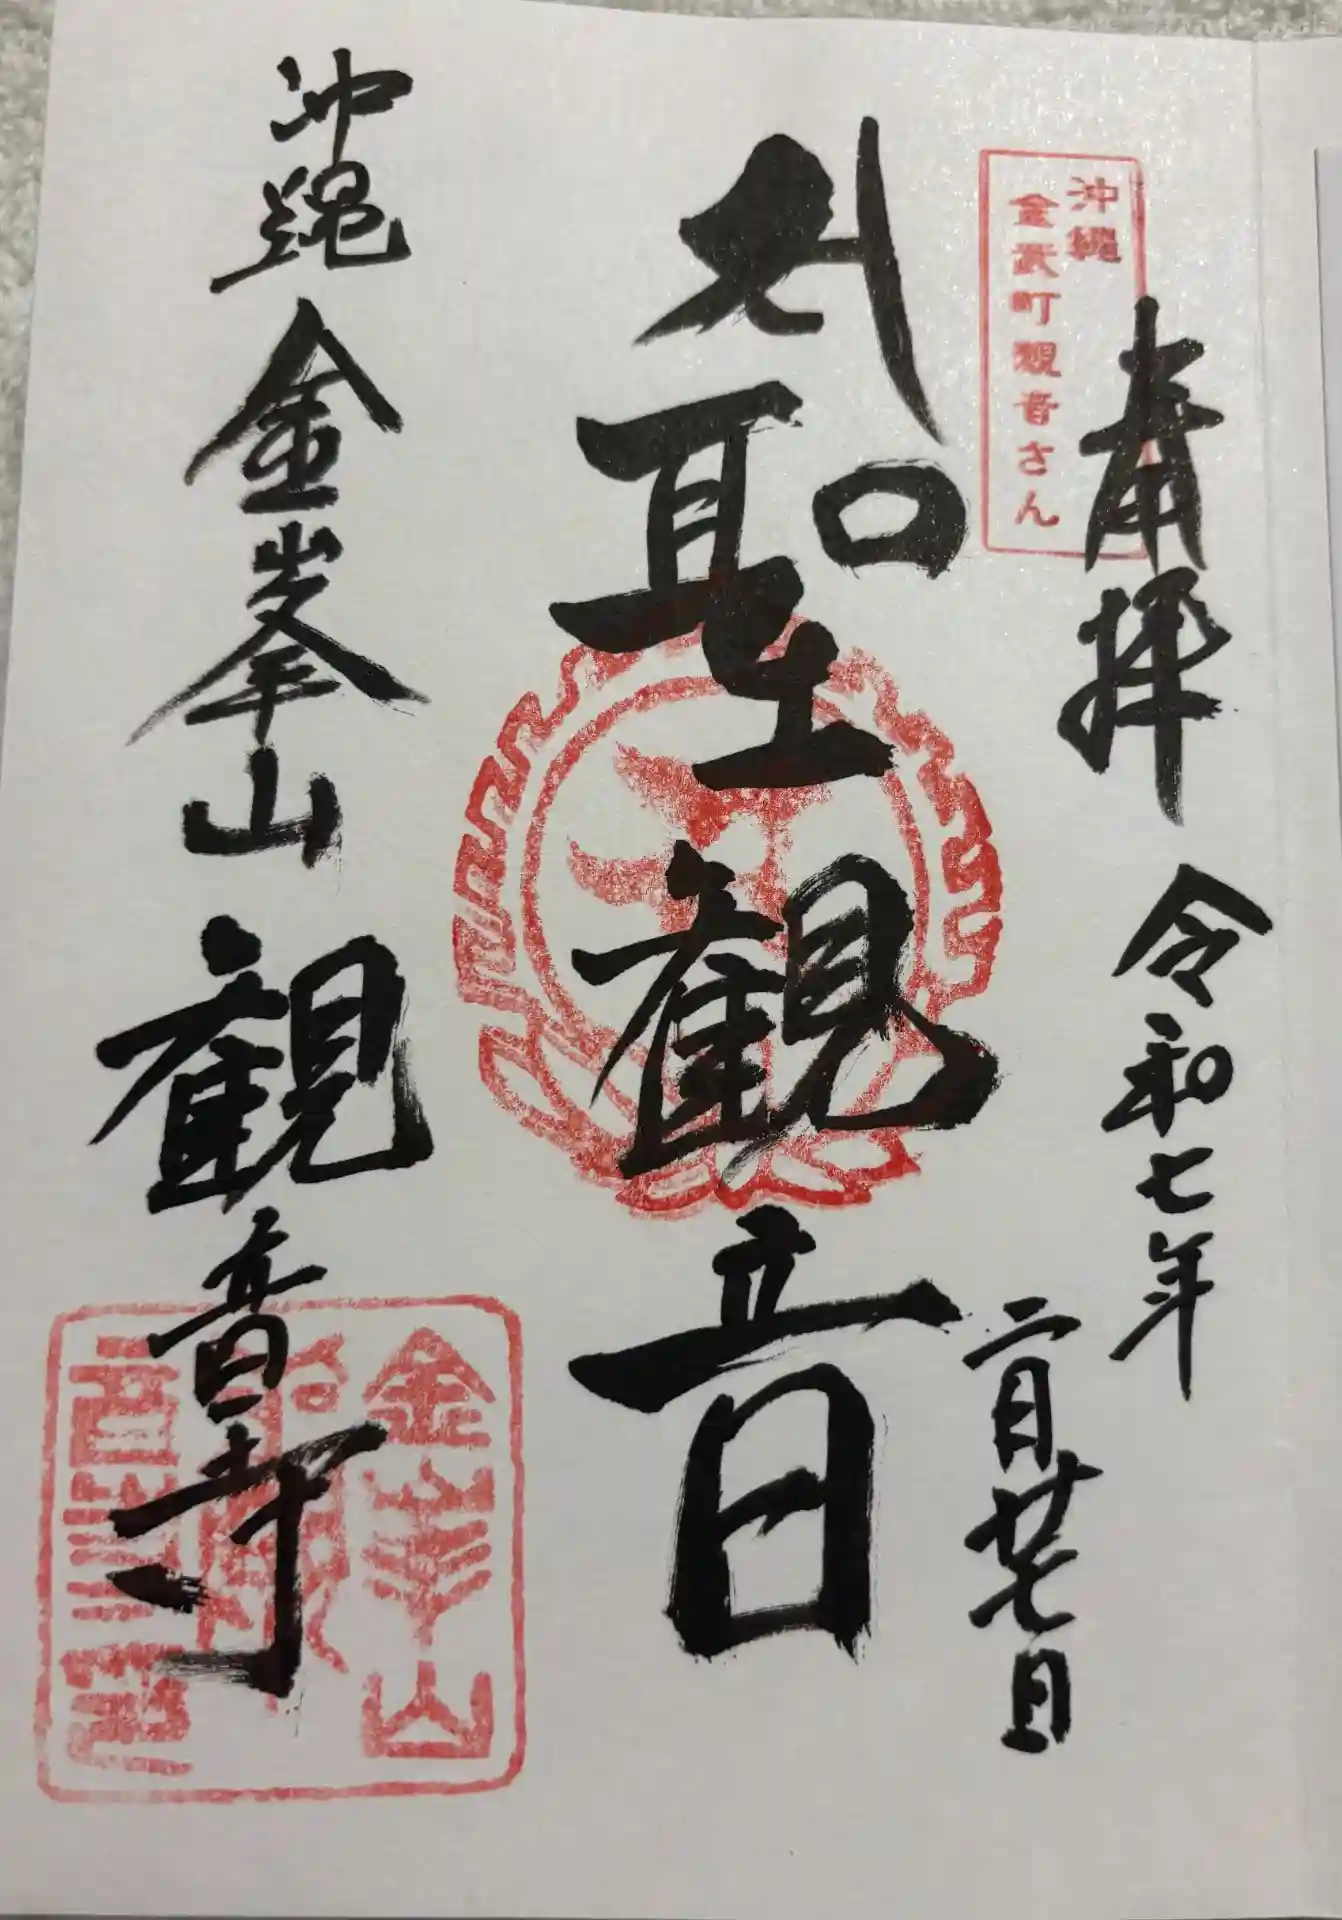 沖縄
金武町観音さん
奉拝
令和七年
二月廿七日
聖観音
沖縄 金峯山 観音寺
金峯山